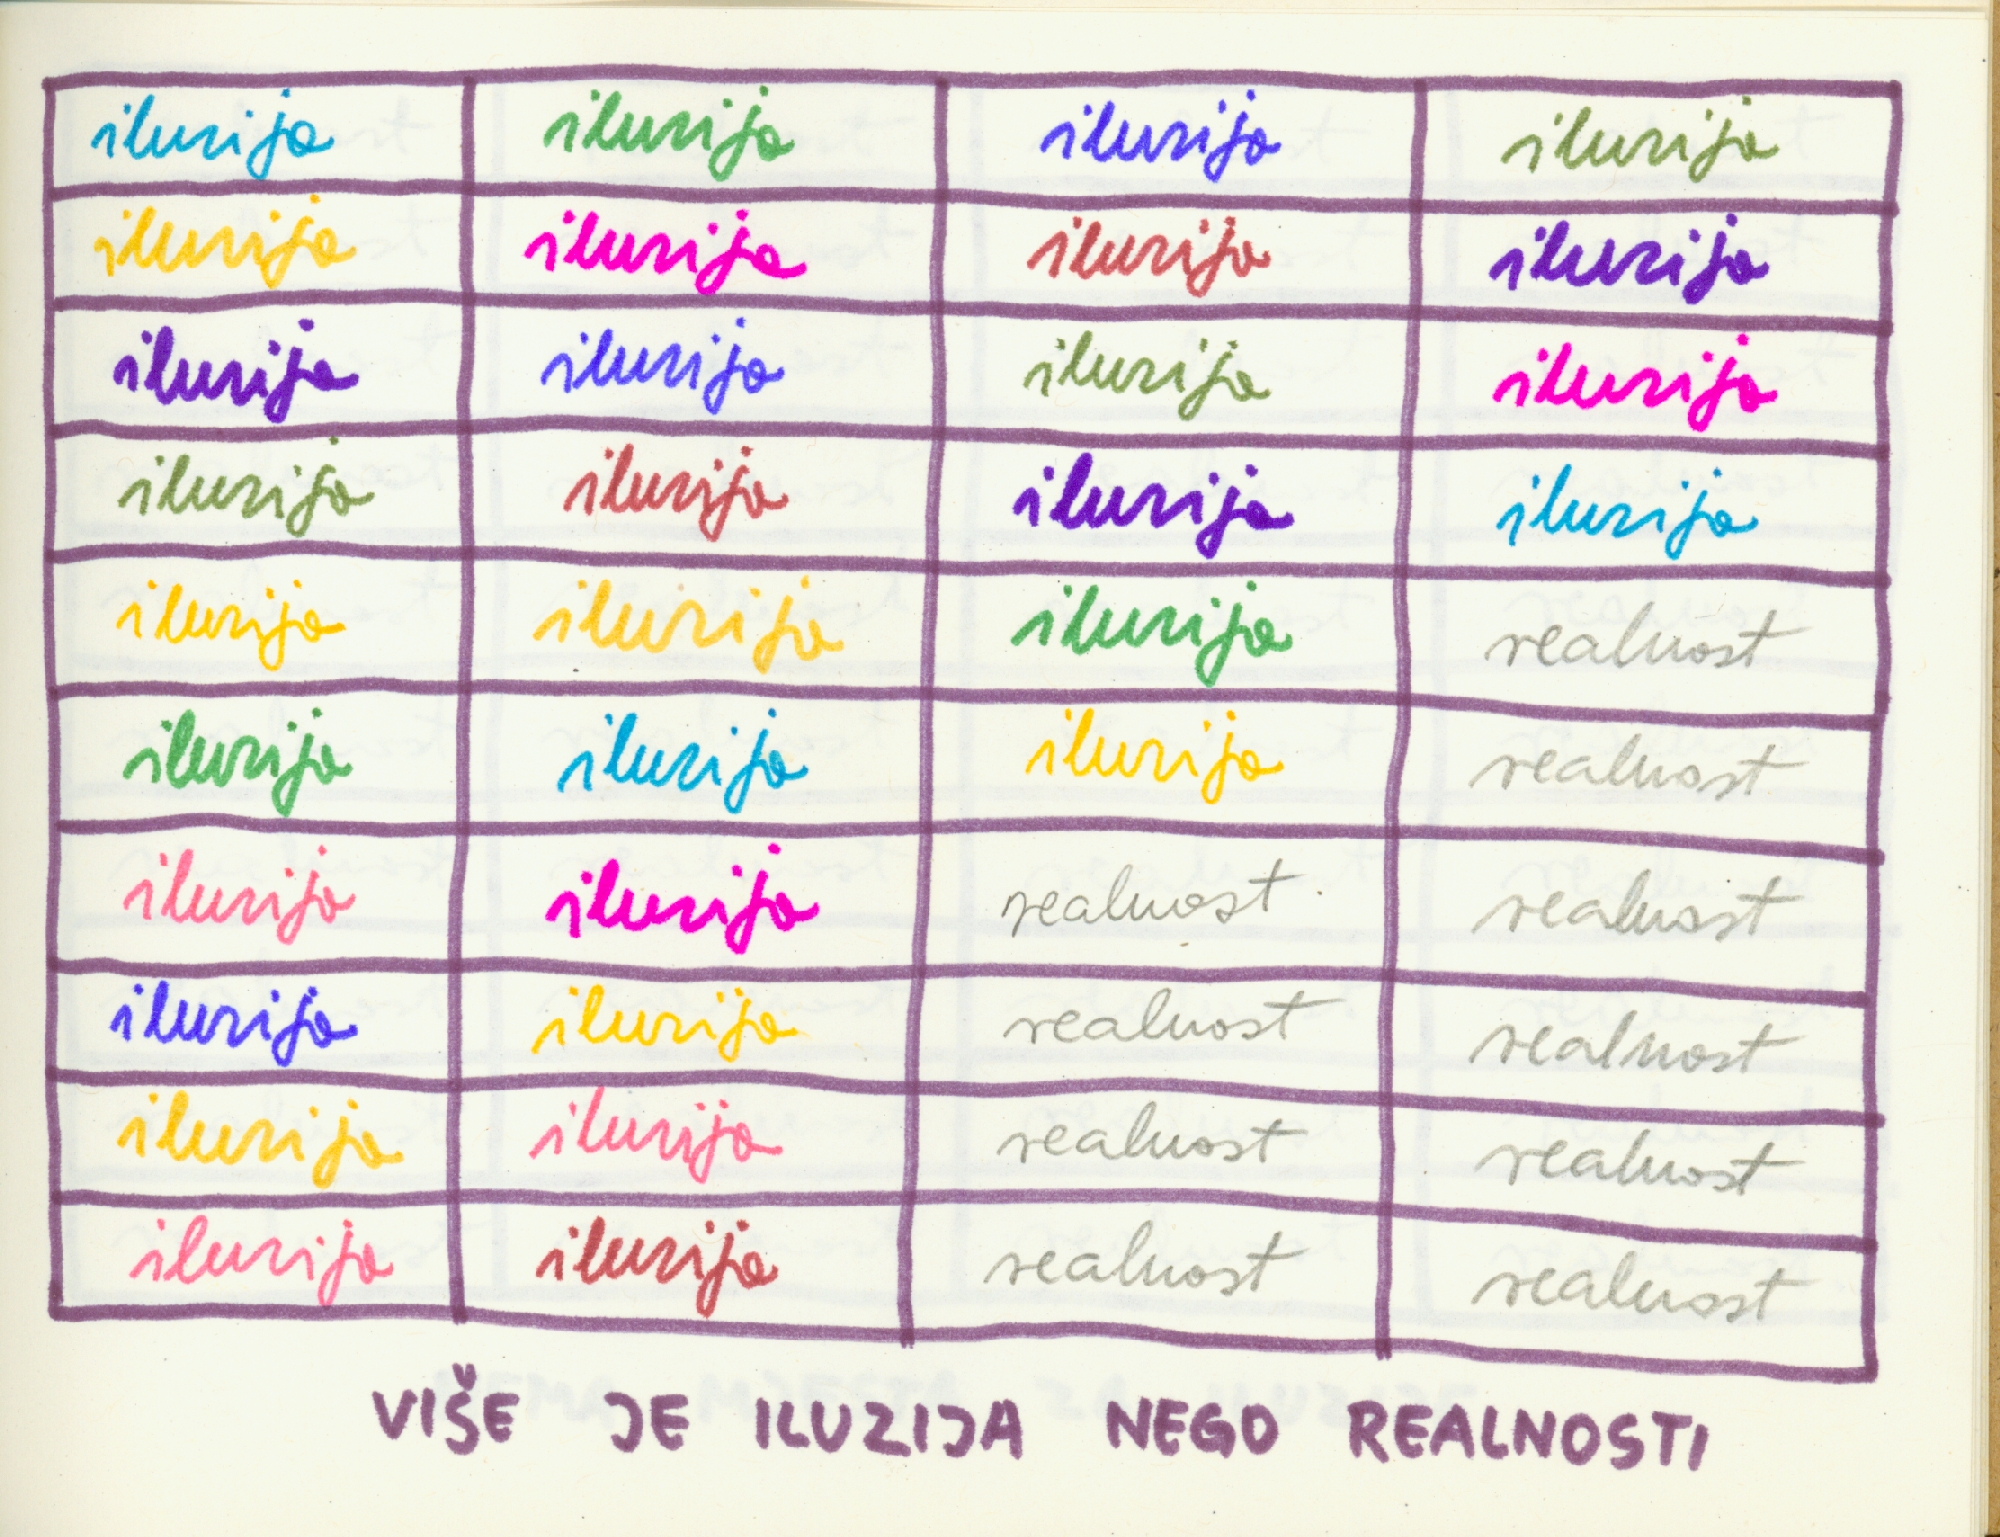 iluzija iluzija iluzija iluzija
iluzija iluzija iluzija iluzija
iluzija iluzija iluzija iluzija
iluzija iluzija iluzija iluzija
iluzija iluzija iluzija realnost
iluzija iluzija iluzija realnost
iluzija iluzija realnost realnost
iluzija iluzija realnost realnost
iluzija iluzija realnost realnost
iluzija iluzija realnost realnost
VIŠE JE ILUZIJA NEGO REALNOSTI